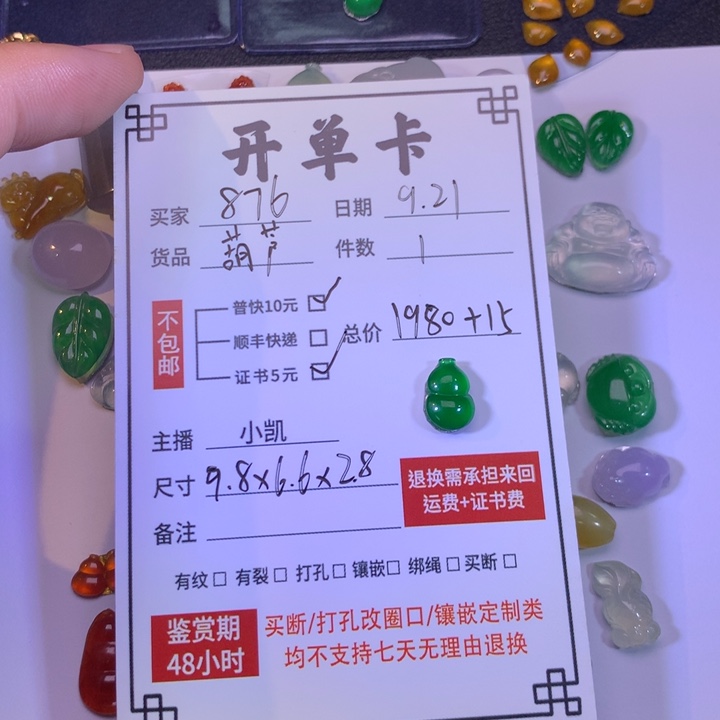 开单卡
买家 876 日期 9.21
货品 葫芦 件数 1
不包邮
普快10元 ☑
顺丰快递 □
证书5元 ☑
总价 1980+15
主播 小凯
尺寸 9.8×6.6×2.8
退换需承担来回
运费+证书费
备注
有纹□ 有裂□ 打孔□ 镶嵌□ 绑绳□ 买断□
鉴赏期
48小时
买断/打孔改圈口/镶嵌定制类
均不支持七天无理由退换